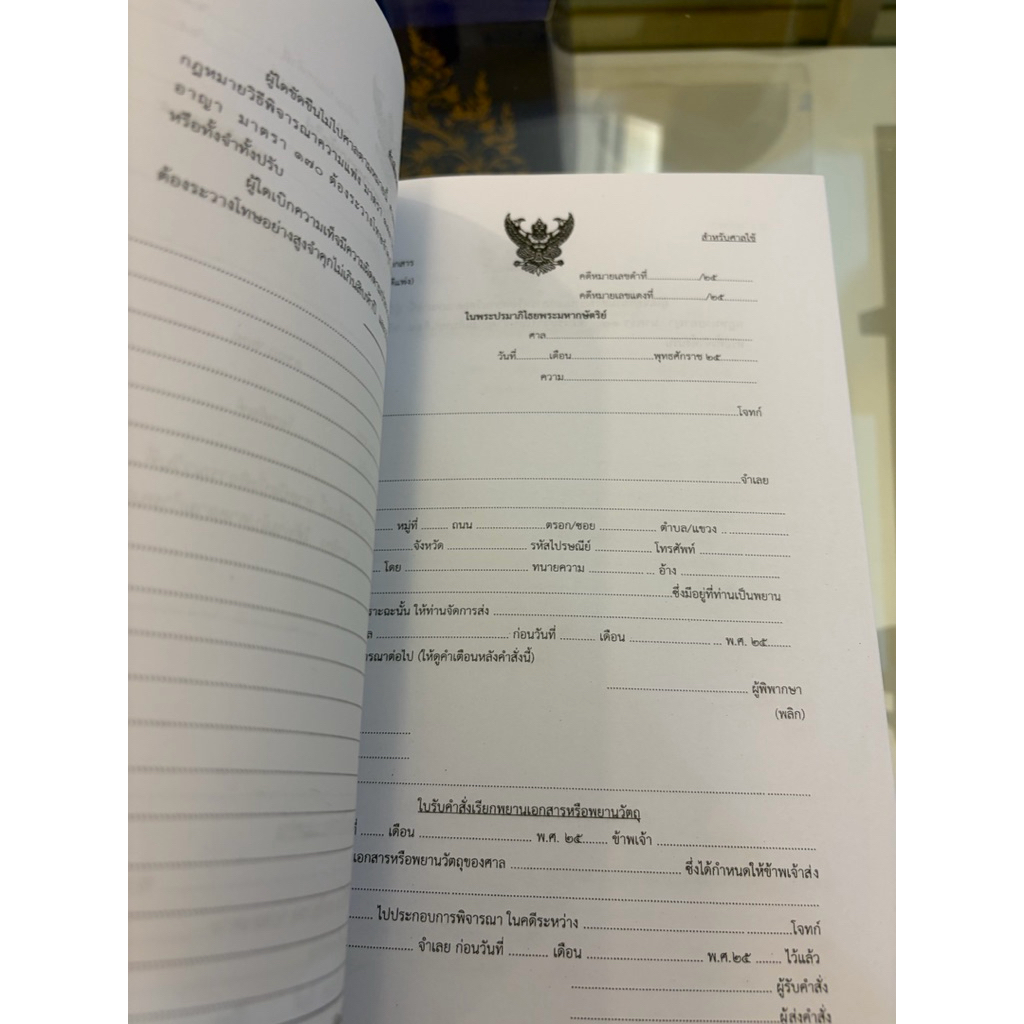 ผู้ใดขัดขืนไม่ไปศาลตามหมายนี้
กฎหมายวิธีพิจารณาความแพ่ง มาตรา
อาญา มาตรา ๑๗๐ ต้องระวางโทษ
หรือทั้งจำทั้งปรับ
ผู้ใดเบิกความเท็จมีความผิดตาม
ต้องระวางโทษอย่างสูงจำคุกไม่เกินสิบปี
สำหรับศาลใช้
กสาร
ดีแพ่ง)
คดีหมายเลขดำที่............/๒๕
คดีหมายเลขแดงที่............/๒๕............
ในพระปรมาภิไธยพระมหากษัตริย์
ศาล............
วันที่............เดือน............พุทธศักราช ๒๕............
ความ............
............โจทก์
............จำเลย
............ หมู่ที่ ............ ถนน ............ ตรอก/ซอย ............ ตำบล/แขวง ............
............จังหวัด ............ รหัสไปรษณีย์ ............ โทรศัพท์ ............
............ โดย ............ ทนายความ ............ อ้าง ............
............ซึ่งมีอยู่ที่ท่านเป็นพยาน
ราะฉะนั้น ให้ท่านจัดการส่ง ............
ล ............ ก่อนวันที่ ............ เดือน ............ พ.ศ. ๒๕............
ารณาต่อไป (ให้ดูคำเตือนหลังคำสั่งนี้)
............ ผู้พิพากษา
(พลิก)
ใบรับคำสั่งเรียกพยานเอกสารหรือพยานวัตถุ
ที่ ............ เดือน ............ พ.ศ. ๒๕............ ข้าพเจ้า ............
อกสารหรือพยานวัตถุของศาล ............ ซึ่งได้กำหนดให้ข้าพเจ้าส่ง
............ ไปประกอบการพิจารณา ในคดีระหว่าง ............โจทก์
............ จำเลย ก่อนวันที่ ............ เดือน ............ พ.ศ.๒๕ ............ ไว้แล้ว
............ ผู้รับคำสั่ง
............ผู้ส่งคำสั่ง